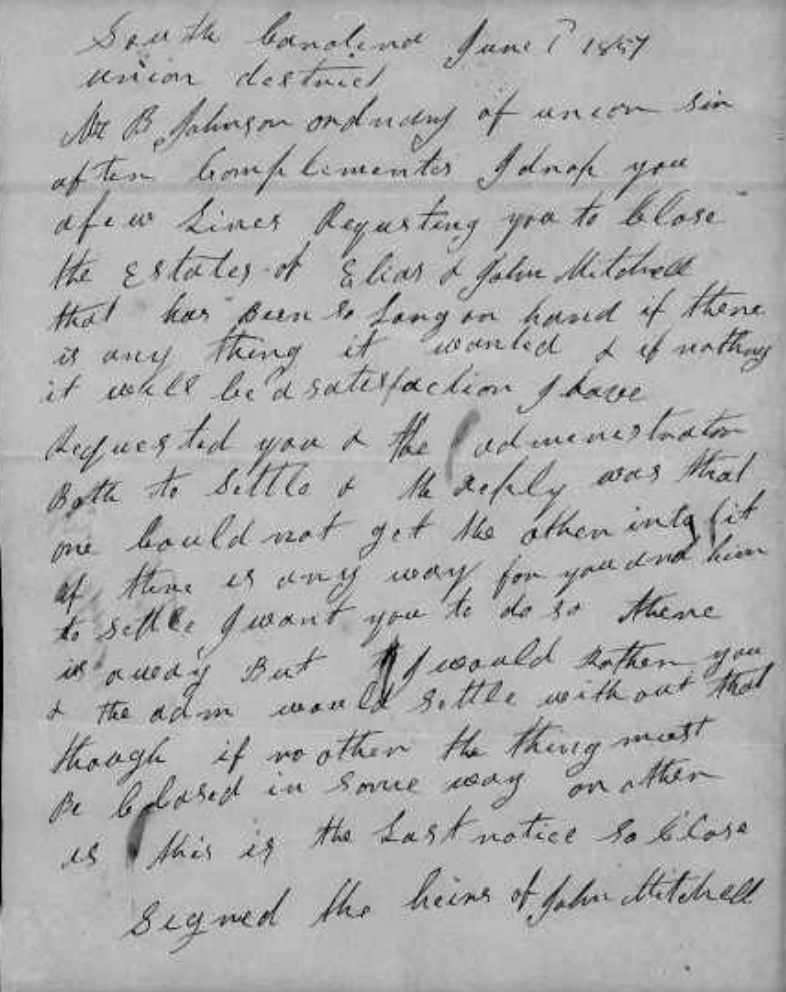 South Carolina June 1857
union district
Mr B Johnson ordnary of union sir
after Complements I drop you
a few Lines Requsting you to Close
the Estates of Elias & John Mitchell
that has Been so Long on hand if there
is any thing it wanted & if nothing
it will be a satisfaction I have
Requested you & the administrator
Both to Settle & the Reply was that
one Could not get the other into it
if there is any way for you and him
to settle I want you to do so there
is away But I would Rather you
& the adm would settle without that
though if no other the thing must
Be Closed in some way or other
is this is the Last notice so Close
Signed the heirs of John Mitchell